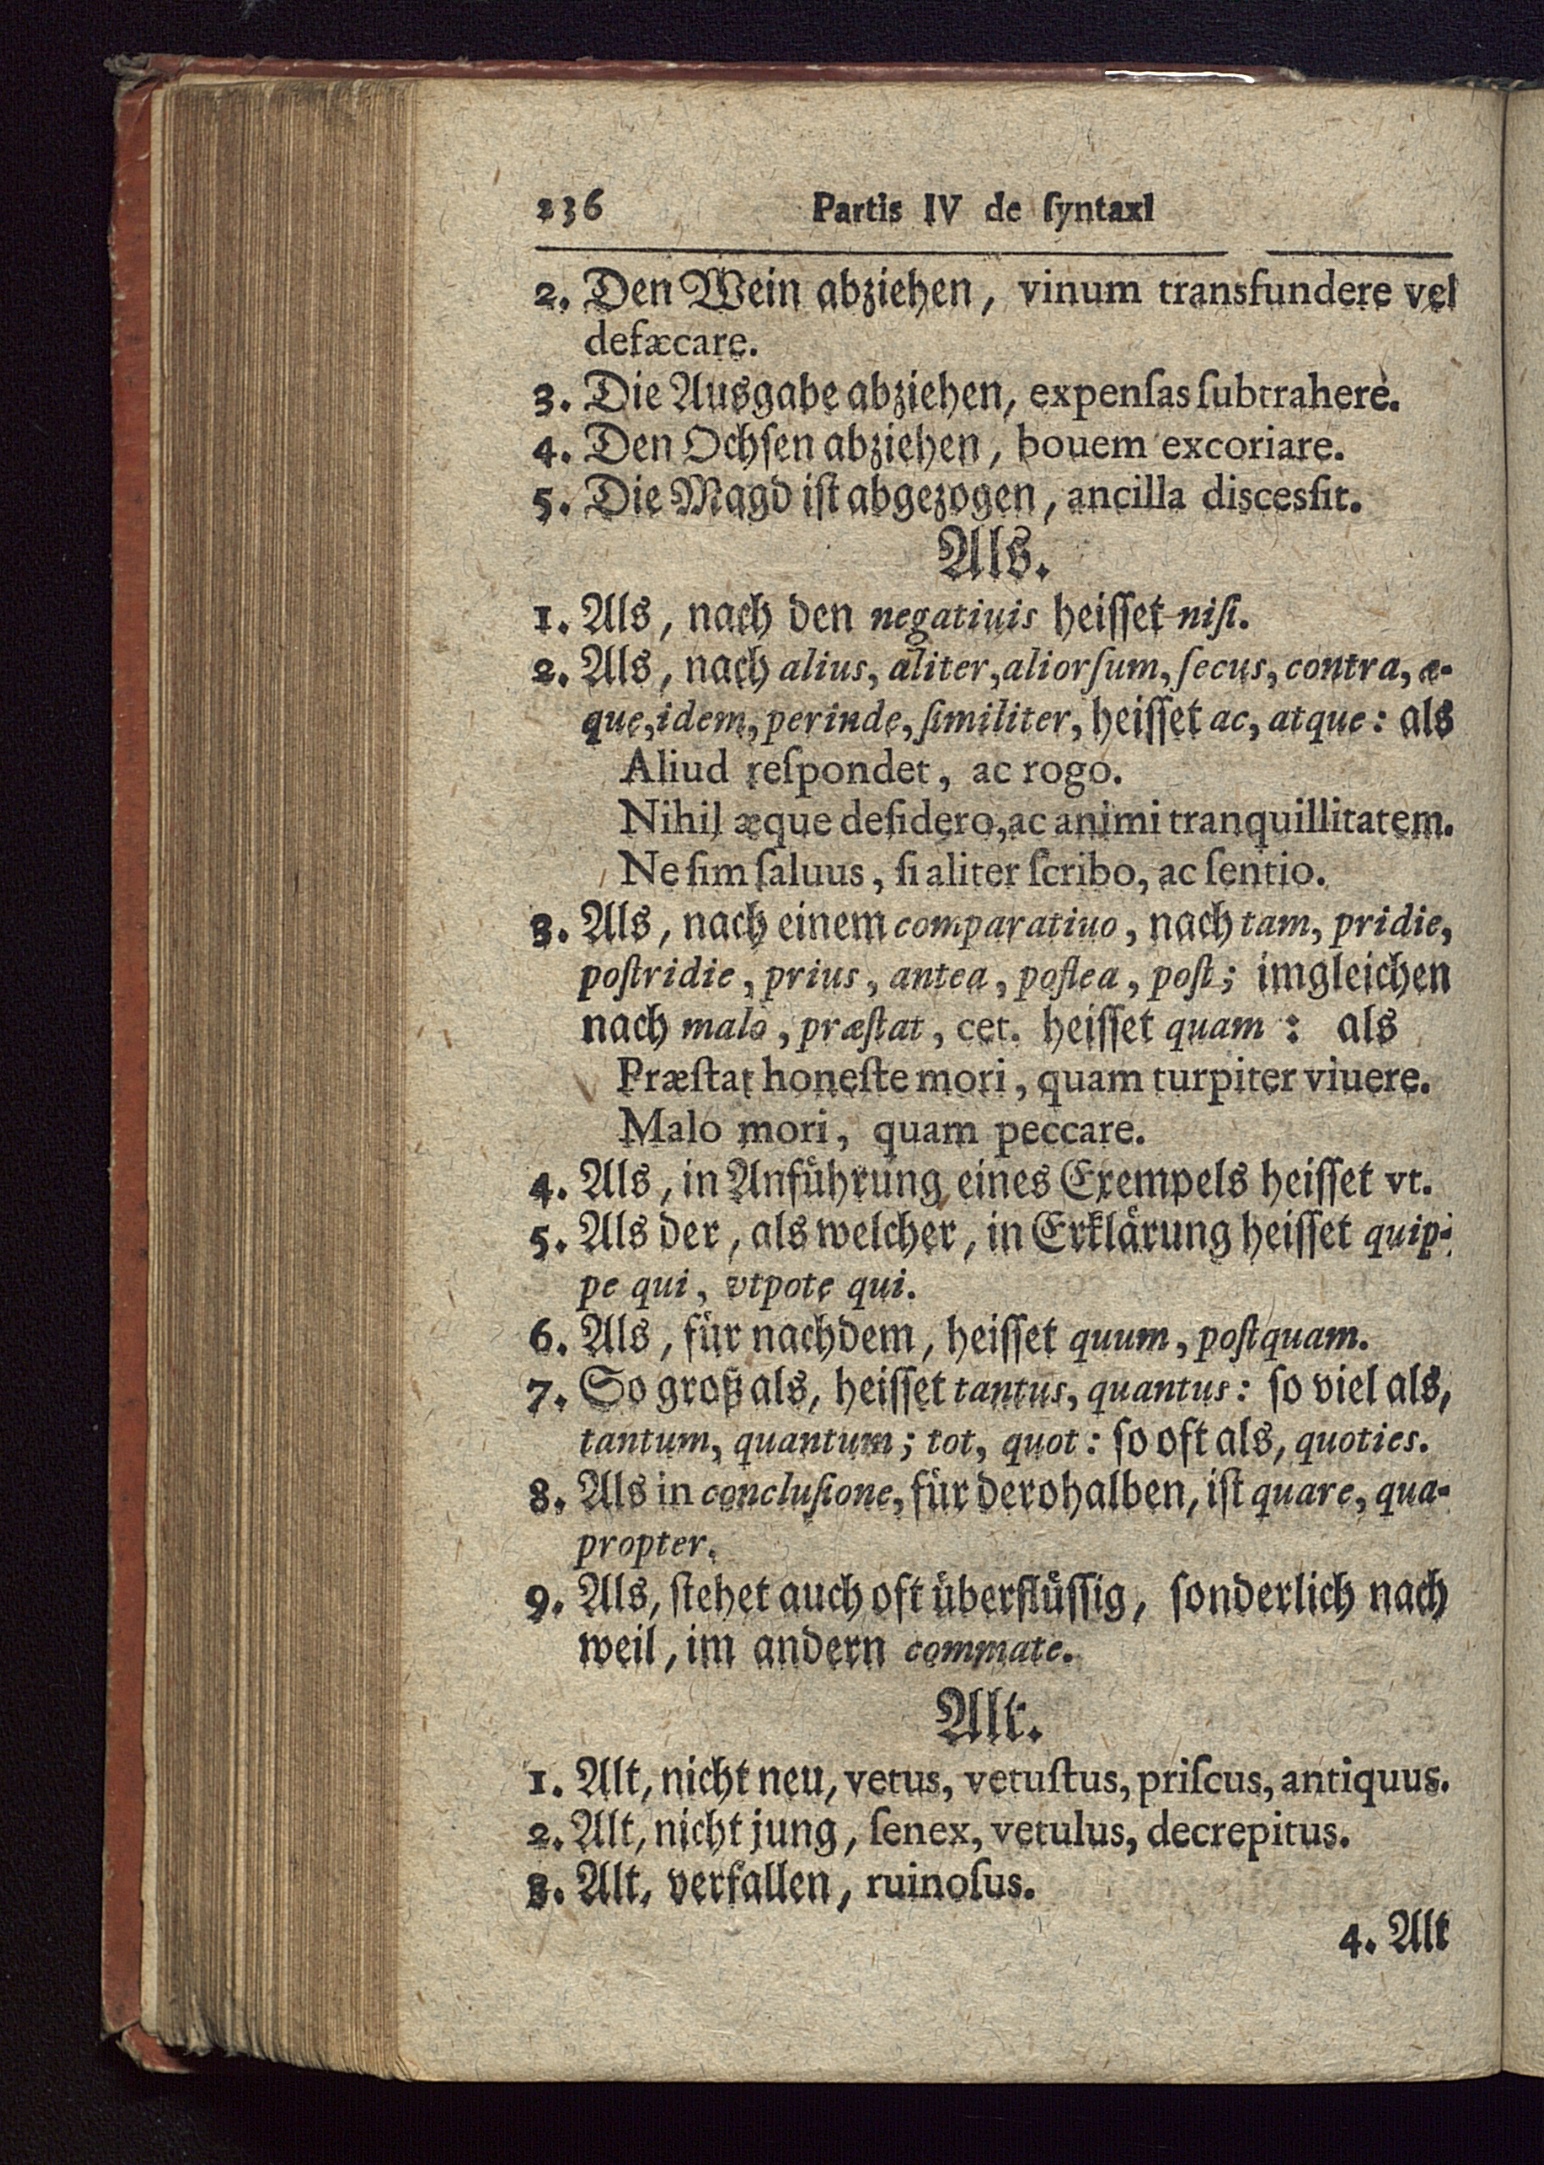 236 Partis IV de ſyntaxi
2. Den Wein abziehen, vinum transfundere vel
defæcare.
3. Die Ausgabe abziehen, expenſas ſubtrahere.
4. Den Ochſen abziehen, bouem excoriare.
5. Die Magd iſt abgezogen, ancilla discesſit.
Als.
1. Als, nach den negatiuis heiſſet niſi.
2. Als, nach alius, aliter, aliorſum, ſecus, contra, æ-
que, idem, perinde, ſimiliter, heiſſet ac, atque: als
Aliud reſpondet, ac rogo.
Nihil æque deſidero, ac animi tranquillitatem.
Ne ſim ſaluus, ſi aliter ſcribo, ac ſentio.
3. Als, nach einem comparatiuo, nach tam, pridie,
poſtridie, prius, antea, poſtea, poſt; imgleichen
nach malo, præſtat, cet. heiſſet quam: als
Præſtat honeſte mori, quam turpiter viuere.
Malo mori, quam peccare.
4. Als, in Anfuͤhrung eines Exempels heiſſet vt.
5. Als der, als welcher, in Erklaͤrung heiſſet quip-
pe qui, vtpote qui.
6. Als, fuͤr nachdem, heiſſet quum, poſtquam.
7. So groß als, heiſſet tantus, quantus: ſo viel als,
tantum, quantum; tot, quot: ſo oft als, quoties.
8. Als in concluſione, fuͤr derohalben, iſt quare, qua-
propter.
9. Als, ſtehet auch oft uͤberfluͤſſig, ſonderlich nach
weil, im andern commate.
Alt.
1. Alt, nicht neu, vetus, vetuſtus, priſcus, antiquus.
2. Alt, nicht jung, ſenex, vetulus, decrepitus.
3. Alt, verfallen, ruinoſus.
4. Alt